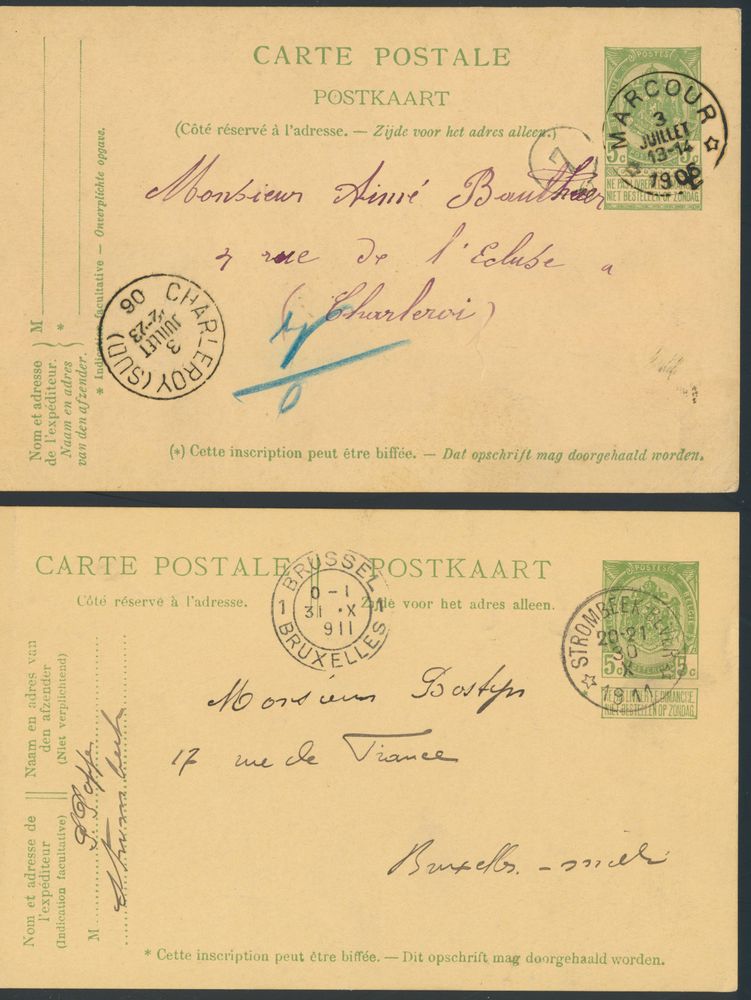 CARTE POSTALE
POSTKAART
(Côté réservé à l'adresse. — Zijde voor het adres alleen.)
POSTES
5c 5c
NE PAS LIVRER LE DIMANCHE
NIET BESTELLEN OP ZONDAG
MARCOUR
3
JUILLET
13-14
1906
7
Monsieur Aimé
7 rue de l'Ecluse a
(Charleroi)
CHARLEROY (SUD)
3
JUILLET
06
Nom et adresse
de l'expéditeur.
Naam en adres
van den afzender.
M
*
* Indication facultative — Onverplichte opgave.
(*) Cette inscription peut être biffée. — Dat opschrift mag doorgehaald worden.
CARTE POSTALE || POSTKAART
Côté réservé à l'adresse. Zijde voor het adres alleen.
1 BRUSSEL 1
0-1
31 X
911
BRUXELLES
POSTES
5c 5c
NE PAS LIVRER LE DIMANCHE
NIET BESTELLEN OP ZONDAG
STROMBEEK-BEVER
20-21
30
X
1911
Monsieur
17 rue de France
Bruxelles - midi
Naam en adres van
den afzender
(Niet verplichtend)
Nom et adresse de
l'expéditeur
(Indication facultative)
M
* Cette inscription peut être biffée. — Dit opschrift mag doorgehaald worden.